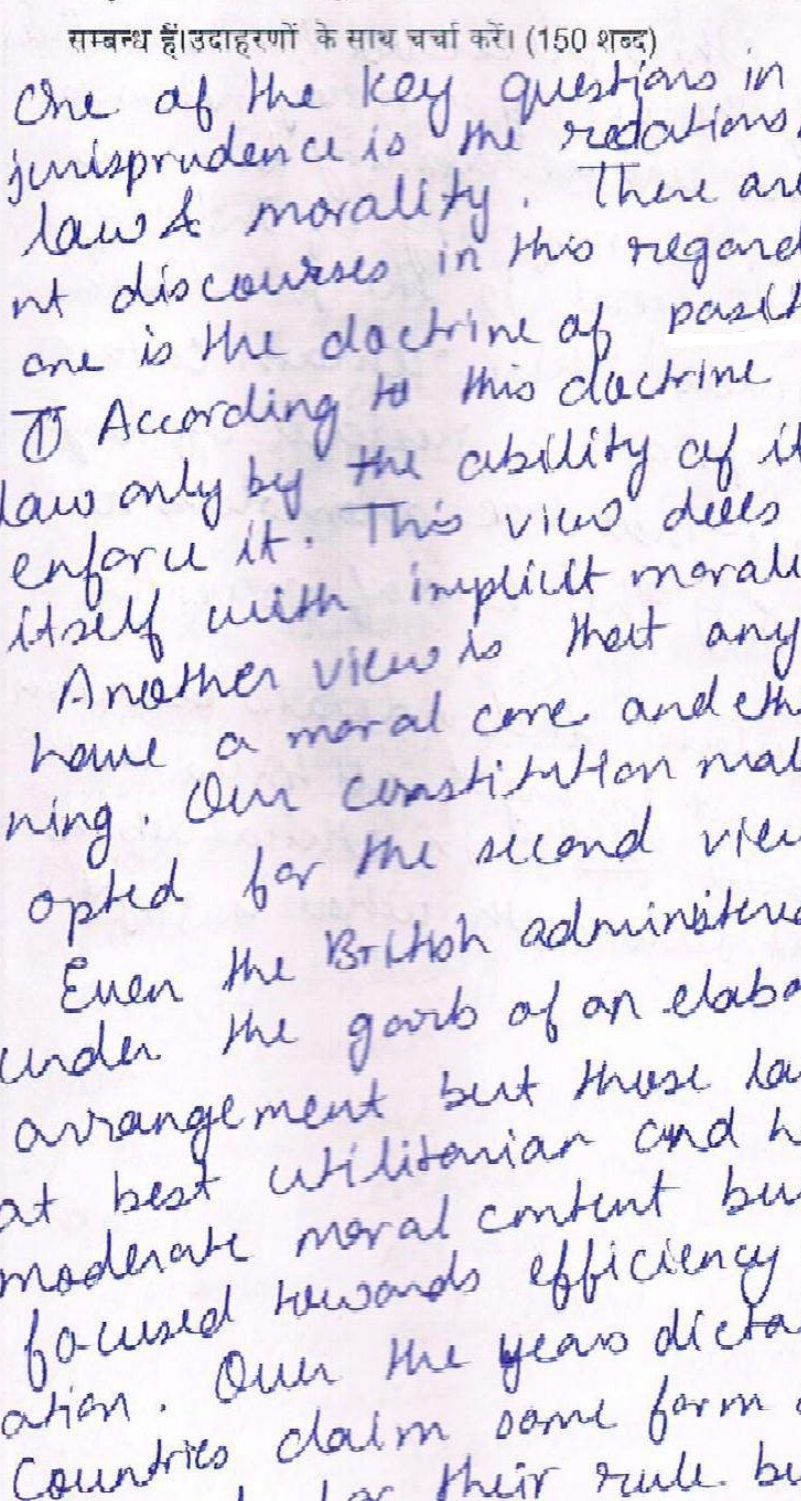 सम्बन्ध हैं।उदाहरणों के साथ चर्चा करें। (150 शब्द)
One of the key questions in
jurisprudence is the relations
law & morality. There are
nt discourses in this regard
one is the doctrine of posit
According to this doctrine
law only by the ability of it
enforce it. This view does
itself with implicit morali
Another view is that any
have a moral core and eth
ning. Our constitution mak
opted for the second view
Even the British administra
under the garb of an elabo
arrangement but those la
at best utilitarian and h
moderate moral content bu
focused towards efficiency
ation. Over the years dicta
Countries claim some form
their rule bu